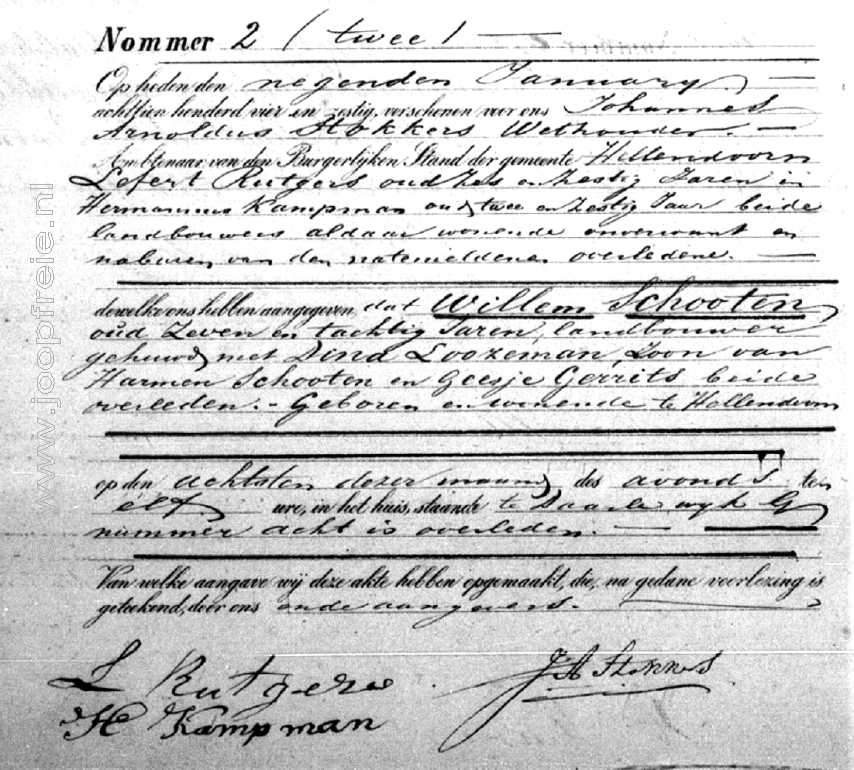 Nommer 2 (twee)
Op heden den negenden January
achttien honderd vier en zestig, verschenen voor ons Johannes
Arnoldus Stokkers Wethouder.
Ambtenaar van den Burgerlijken Stand der gemeente Hellendoorn
Lefert Rutgers oud zes en zestig Jaren en
Hermannus Kampman oud twee en zestig Jaar beide
landbouwers aldaar wonende onverwant en
naburen van den natemeldenen overledene.
dewelke ons hebben aangegeven, dat Willem Schooten
oud Zeven en tachtig Jaren, landbouwer
gehuwd met Dina Loozeman, Zoon van
Harmen Schooten en Geesje Gerrits beide
overleden. - Geboren en wonende te Hellendoorn
op den achtsten dezer maand des avonds ten
elf ure, in het huis, staande te Daarle wyk G
nummer acht is overleden.
Van welke aangave wij deze akte hebben opgemaakt, die, na gedane voorlezing is
geteekend, door ons ende aangevers.
L Rutgers
H Kampman
www.joopfreie.nl